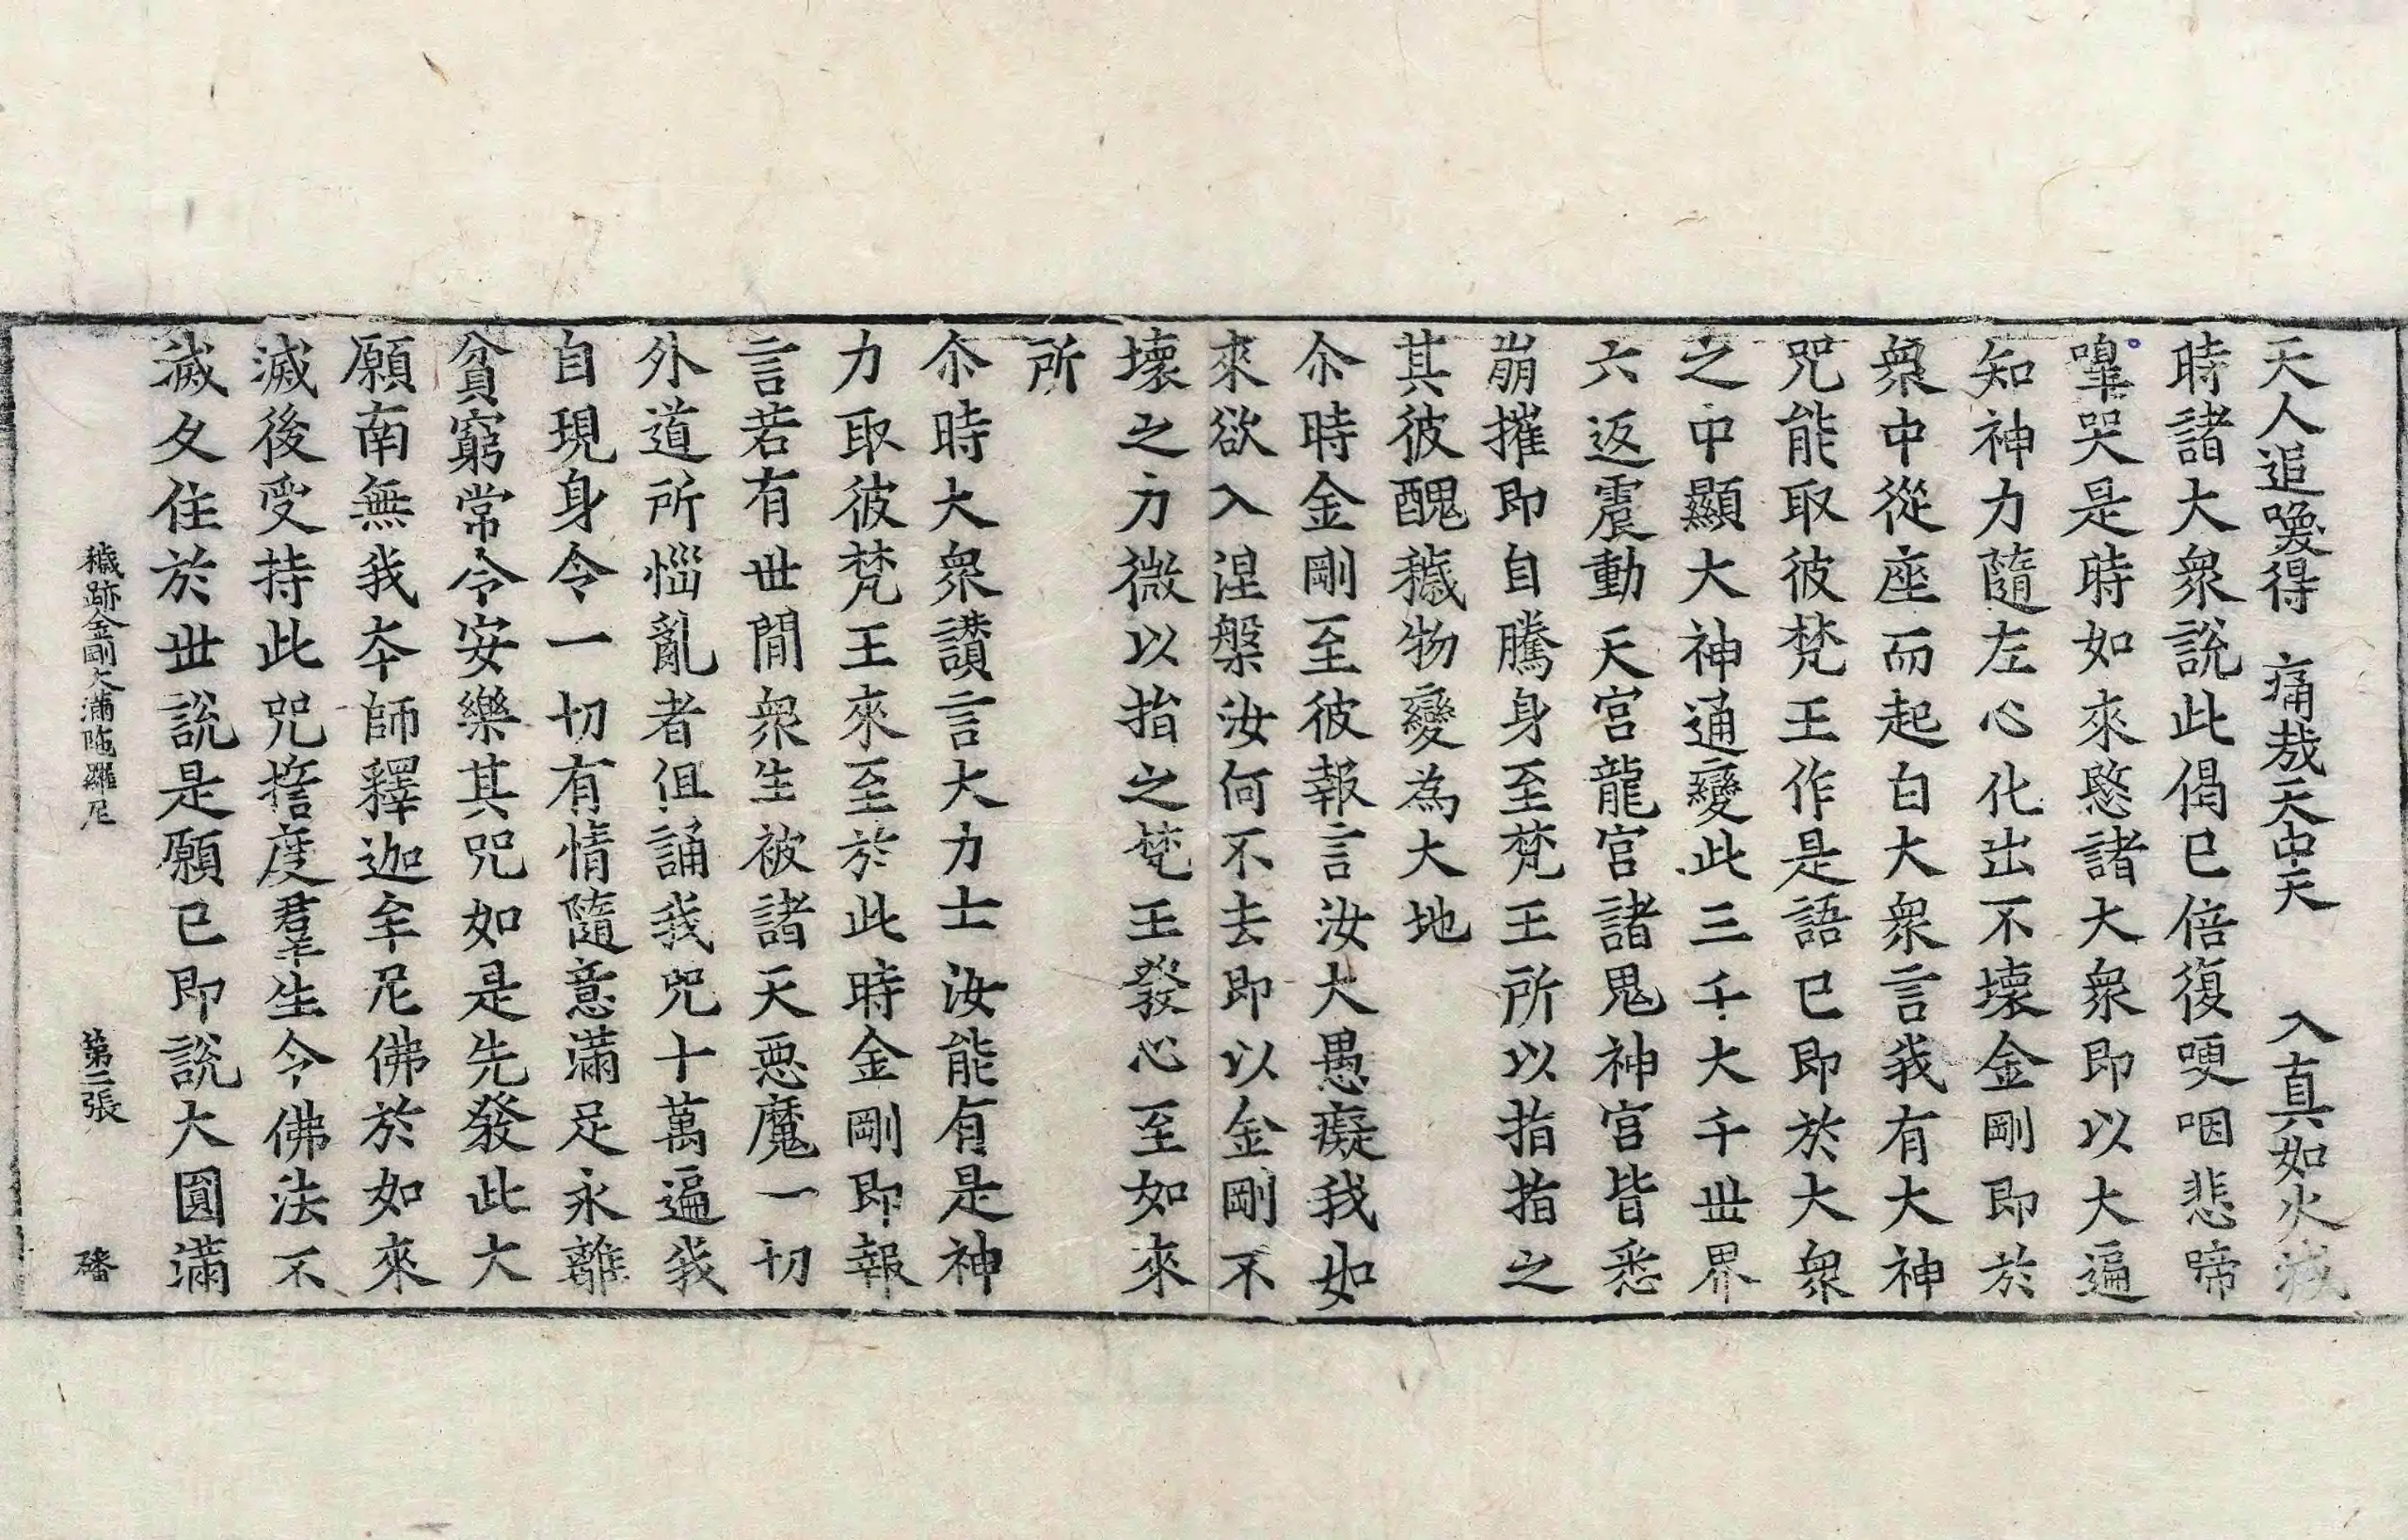 天人追喚得 痛哉天中天 入真如火滅
時諸大衆說此偈已倍復哽咽悲啼
嘷哭是時如來愍諸大衆即以大遍
知神力隨左心化出不壞金剛即於
衆中從座而起白大衆言我有大神
咒能取彼梵王作是語已即於大衆
之中顯大神通變此三千大千世界
六返震動天宮龍宮諸鬼神宮皆悉
崩摧即自騰身至梵王所以指指之
其彼醜穢物變為大地
尒時金剛至彼報言汝大愚癡我如
來欲入涅槃汝何不去即以金剛不
壞之力微以指之梵王發心至如來
所
尒時大衆讃言大力士汝能有是神
力取彼梵王來至於此時金剛即報
言若有世閒衆生被諸天惡魔一切
外道所惱亂者但誦我咒十萬遍我
自現身令一切有情隨意滿足永離
貧窮常令安樂其咒如是先發此大
願南無我本師釋迦牟尼佛於如來
滅後受持此咒誓度羣生令佛法不
滅久住於世說是願已即說大圓滿
穢跡金剛大滿陁羅尼 第二張 磻